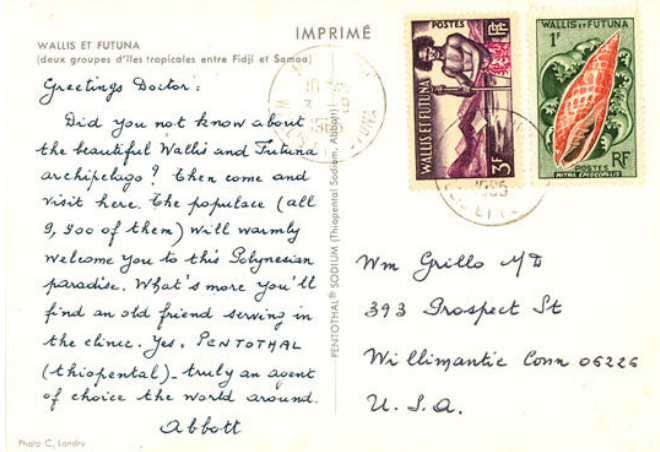 IMPRIMÉ
WALLIS ET FUTUNA
(deux groupes d'îles tropicales entre Fidji et Samoa)
Greetings Doctor:
Did you not know about
the beautiful Wallis and Futuna
archipelago? Then come and
visit here. The populace (all
9,900 of them) will warmly
welcome you to this Polynesian
paradise. What's more you'll
find an old friend serving in
the clinic. Yes, PENTOTHAL
(thiopental) - truly an agent
of choice the world around.
Abbott
Photo C, Landry
PENTOTHAL® SODIUM (Thiopental Sodium, Abbott)
POSTES RF
WALLIS ET FUTUNA
3F
WALLIS ET FUTUNA
1F
POSTES RF
MITRA EPISCOPALIS
1965
Wm Grillo MD
393 Prospect St
Willimantic Conn 06226
U.S.A.